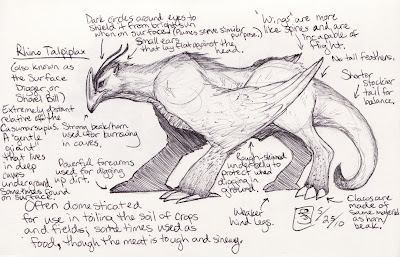 Dark circles around eyes to
shield it from bright sun
when on surface. (Plumes serve similar
purpose)
Small ears
that lay flat against the
head.
'Wings' are more
like spines and are
incapable of
flight.
No tail feathers.
Shorter
Stockier
tail for
balance.
Rhino Talpiplax
(also known as
the Surface
Digger or
Shovel Bill)
Extremely distant
relative of the
A 'gentle
giant'
that lives
in deep
caves
underground,
Sometimes found
on surface.
Strong beak/horn
used for burrowing
in caves.
Powerful forearms
used for digging
up dirt.
Rough-skinned
underbelly to
protect when
digging in
ground.
Weaker
hind legs.
Claws are
made of
same material
as horn/
beak.
Often domesticated
for use in toiling the soil of crops
and fields; some times used as
food, though the meat is tough and sinewy.
5/
25/
10